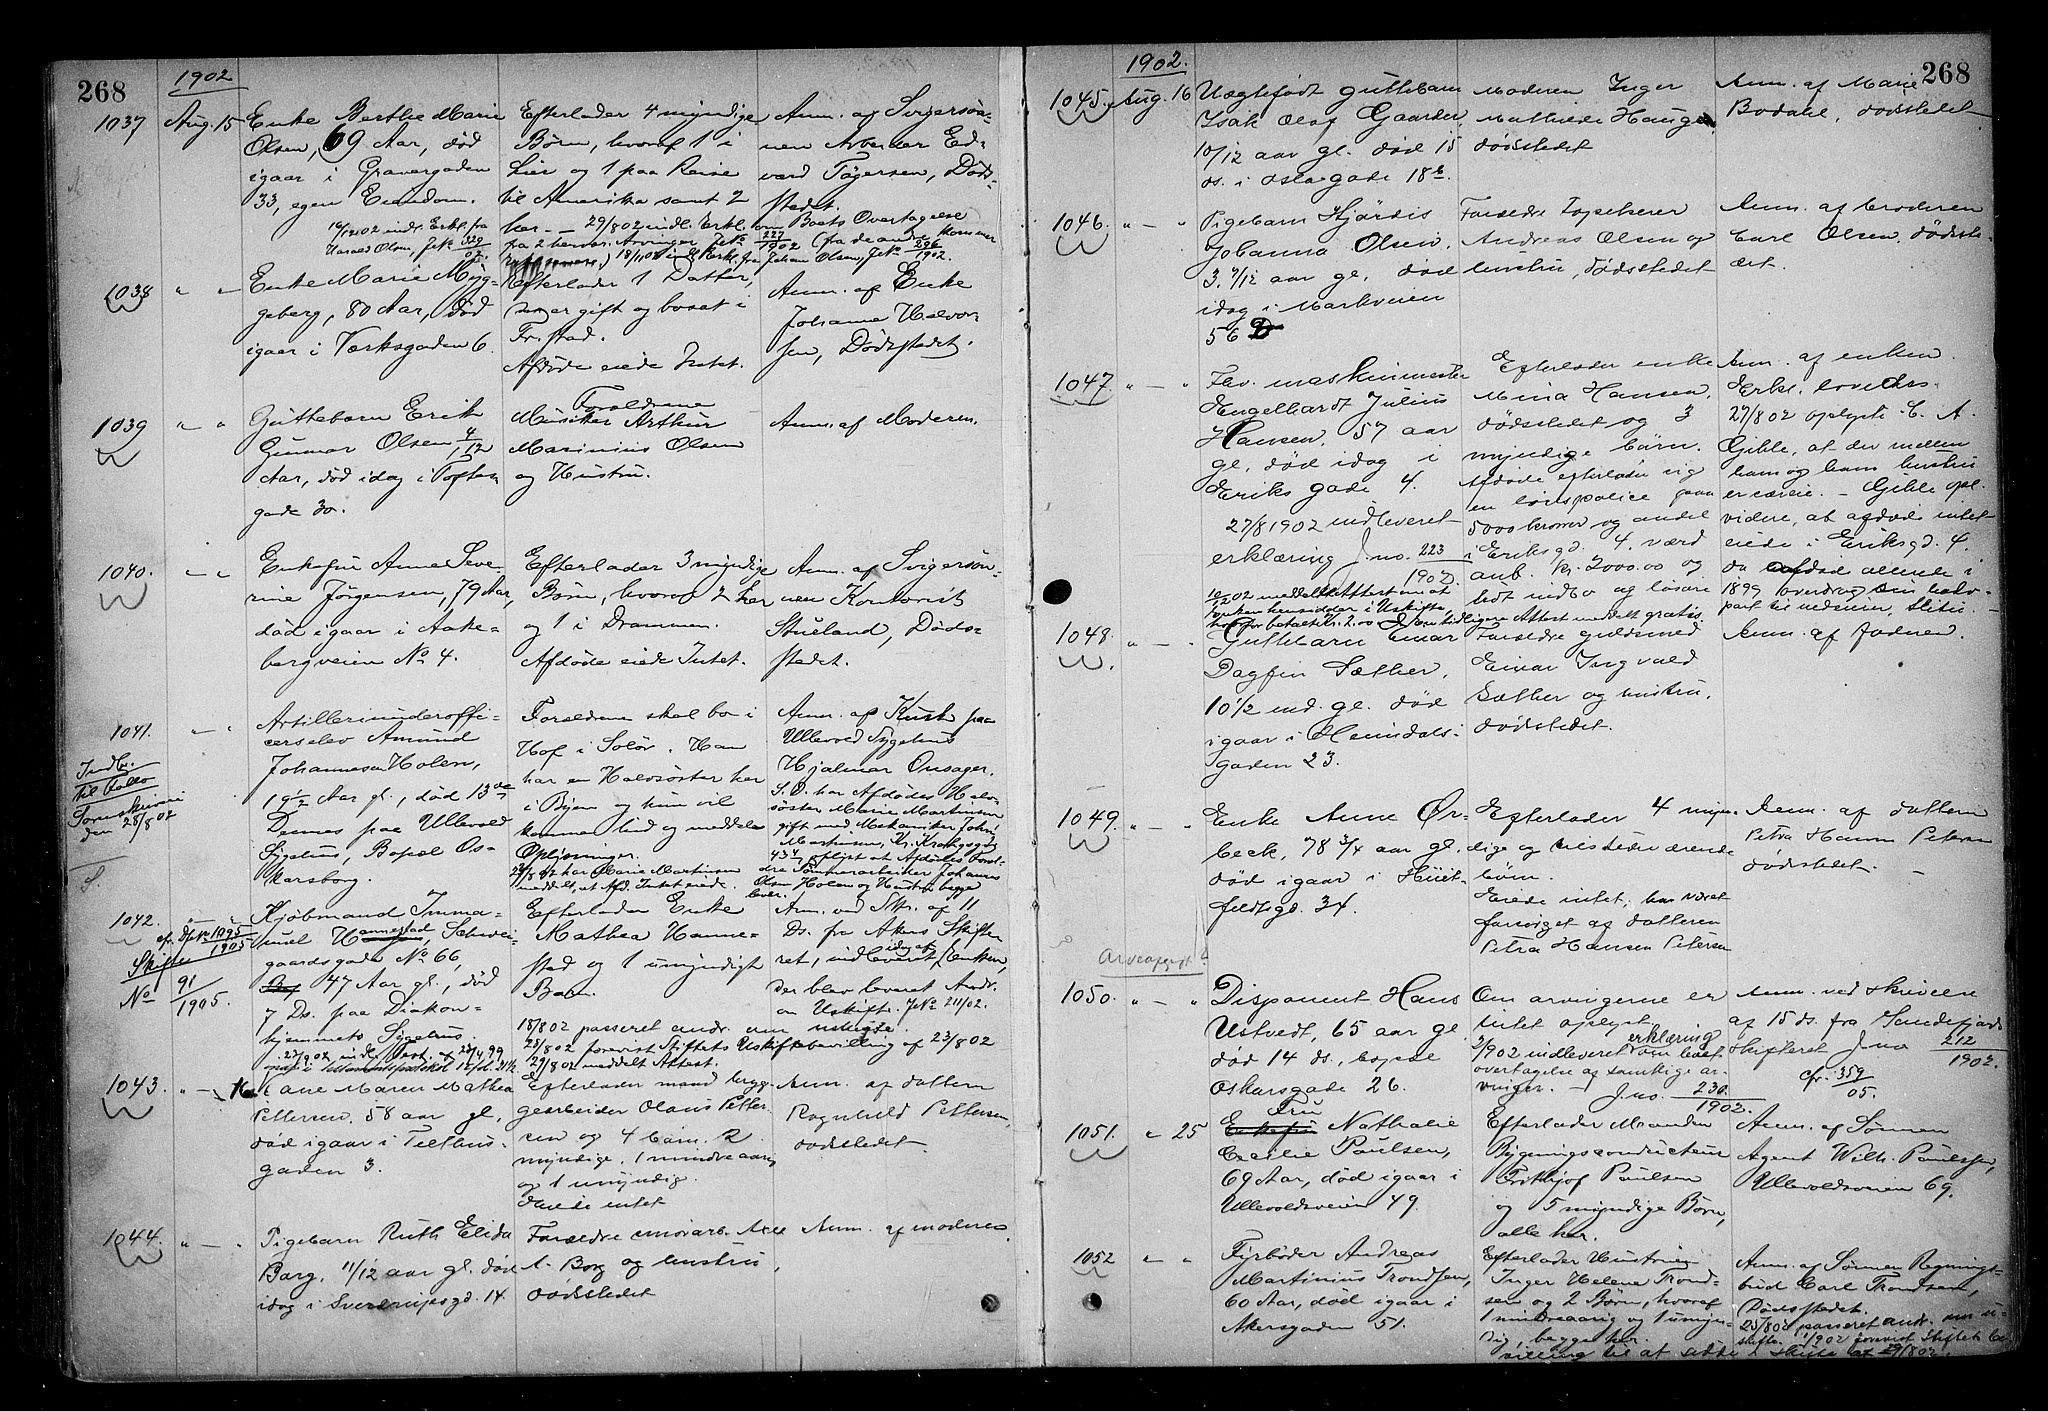 268
1902
1037 Aug. 15
Enke Berthe Marie
Olsen, 69 Aar, død
igaar i Gravergaden
33, egen Eiendom.
Efterlader 4 myndige
Børn, hvoraf 1 i
Lier og 1 paa Reise
til Amerika samt 2
her.
Anm. af Svigersøn-
nen Arbeider Ed-
vard Tøgersen, Døds-
stedet.
29/8 02 indl. Erkl. om Boets Overtagelse
Harald Olsen, JNo 329
1038 " "
Enke Marie Myg-
geberg, 80 Aar, død
igaar i Værksgaden 6.
Efterlader 1 Datter,
som er gift og bosat i
Fr.stad.
Afdøde eiede Intet.
Anm. af Enke
Johanne Halvor-
sen, Dødsstedet.
1039 " "
Guttebarn Erik
Gunnar Olsen, 4/12
Aar, død idag i Toftes
gade 30.
Forældrene
Musiker Arthur
Marinius Olsen
og Hustru.
Anm. af Moderen.
1040. — "
Enkefru Anne Seve-
rine Jørgensen, 79 Aar,
død igaar i Aake-
bergveien No 4.
Efterlader 3 myndige
Børn, hvoraf 2 her
og 1 i Drammen.
Afdøde eiede Intet.
Anm. af Svigersøn-
nen Kontorist
Stueland, Døds-
stedet.
1041. — "
Indb.
til Follo
Sorenskriveri
den 28/8 02
Artilleriunderoffi-
cerselev Amund
Johannesen Holen,
19 1/2 Aar gl., død 13de
Dennes paa Ullevold
Sygehus, Bopæl Os-
karsborg.
Forældrene skal bo i
Hof i Solør. Han
har en Halvsøster her
i Byen og hun vil
komme hid og meddele
Oplysninger.
28/8 02 har Marie Martinsen
meddelt, at Afd. Intet eiede.
Anm. af Kusk paa
Ullevold Sygehus
Hjalmar Onsager.
S.D. har Afdødes Halv-
søster Marie Martinsen
gift med Mekaniker Johs
Martinsen, Kr. Kroghsgd
43 4, oplyst at Afdødes Foræl-
dre Tømmerarbeider Johannes
Olsen Holen og Hustru begge
lever.
1042.
cfr. Dp No 1095/1905
Skifte
No 91/1905.
Kjøbmand Imma-
nuel Hannestad, Schwei-
gaardsgade No 66,
47 Aar gl., død
7 Ds. paa Diakon-
hjemmets Sygehus
Efterlader Enke
Mathea Hanne-
stad og 1 umyndigt
Barn.
18/8 02 passeret andr. om uskifte.
23/8 02 forevist Stiftets Uskiftebevilling af 23/8 02
27/8 02 meddelt Attest.
Anm. ved Skr. af 11
Ds. fra Akers Skifte
ret, indleveret idag af Enken,
Der blev leveret Andr.
om Uskift. JNo 211/02.
1043. " — 16
Lane Maren Mathea
Pettersen, 58 aar gl,
død igaar i Tielthus-
gaden 3.
Efterlader mand bryg
gearbeider Olaus Petter
sen og 4 børn. 2
myndige, 1 mindreaarig
og 1 umyndig.
Eiede intet
Anm. af datteren
Ragnhild Pettersen,
dødsstedet
1044. " — "
Pigebarn Ruth Elida
Borg, 11/12 aar gl. død
idag i Sverdrupsgd. 14.
Forældre murarb. Axel
A. Borg og hustru,
dødsstedet
Anm. af moderen
1902.
268
1045. Aug. 16
Uægtefødt guttebarn
Isak Olaf Gaarder,
10/12 aar gl. død 15
ds. i Oslogade 18b
Moderen Inger
Mathilde Haugen,
dødsstedet
Anm. af Marie
Bodahl, dødsstedet
1046. " — "
Pigebarn Hjørdis
Johanna Olsen,
3 7/12 aar gl. død
idag i Markveien
56 D
Forældre Tapetserer
Andreas Olsen og
hustru, dødsstedet
Anm. af broderen
Carl Olsen, dødsste-
det.
1047 " — "
Fev. maskinmester
Engelhardt Julius
Hansen, 57 aar
gl, død idag i
Eriks gade 4.
27/8 1902 indleveret
erklæring J.no. 223/1902
Efterlader enke
Mina Hansen,
dødsstedet og 3
myndige børn.
Afdøde efterlader sig
en livspolice paa
5000 kroner og andel
i Eriksgd. 4, værd
anb. kr. 2000.00 og
lidt indbo og løsøre
Anm. af enken.
27/8 02 oplyste C. A.
Gihle, at der mellem
ham og hans hustru
er særeie. — Gihle opl.
videre, at afdøde intet
eiede i Eriksgd. 4.
da afdød allerede i
1899 overdrog sin halv-
part til
1048. " — "
Guttebarn Einar
Dagfin Sæther,
10 1/2 md. gl. død
igaar i Heimdals-
gaden 23.
Forældre guldsmed
Einar Ingvald
Sæther og hustru,
dødsstedet.
Anm. af Jordmor.
1049. " — "
Enke Anne Ør-
beck, 78 3/4 aar gl.
død igaar i Hüit-
feldtsgd. 34.
Efterlader 4 myn-
dige og tilstedeværende
børn.
Eiede intet, har været
forsørget af datteren
Petra Hansen Petersen
Anm. af datteren
Petra Hansen Petersen
dødsstedet.
Arveafgift
1050. " — "
Disponent Hans
Ustvedt, 65 aar gl.
død 14 ds., bopæl
Oskarsgade 26.
Om arvingerne er
intet oplyst
2/9 02 indleveret erklæring om boets
overtagelse af samtlige ar-
vinger. — J.no. 230/1902.
Anm. ved skrivelse
af 15 ds. fra Sandefjords
skifteret J.no 212/1902.
cfr. 359/05.
1051. " 25
Fru
Enkefru Nathalie
Cecilie Paulsen,
69 Aar, død igaar i
Ullevoldsveien 49.
Efterlader Manden
Bygningsconducteur
Frithjof Paulsen
og 5 myndige Børn,
alle her.
Anm. af Sønnen
Agent Wilh. Paulsen,
Ullevoldsveien 69.
1052 " "
Fyrbøder Andreas
Martinius Trondsen,
60 Aar, død igaar i
Akersgaden 51.
Efterlader Hustruen
Inger Helene Trond-
sen og 2 Børn, hvoraf
1 mindreaarig og 1 umyn-
dig, begge her.
Anm. af Sønnen Regnings-
bud Carl Trondsen,
Dødsstedet.
25/8 02 passeret andr. om u-
skifte. 1/9 02 forevist Stiftets be-
villing til at sidde i Uskifte af 29/8 02.